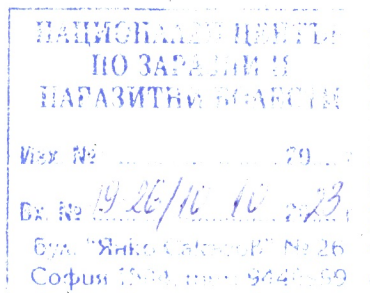 НАЦИОНАЛЕН ЦЕНТЪР
ПО ЗАРАЗНИ И
ПАРАЗИТНИ БОЛЕСТИ
Изх. № 20
Вх. № 19 26/16 10 2023
бул. "Янко Сакъзов" № 26
София